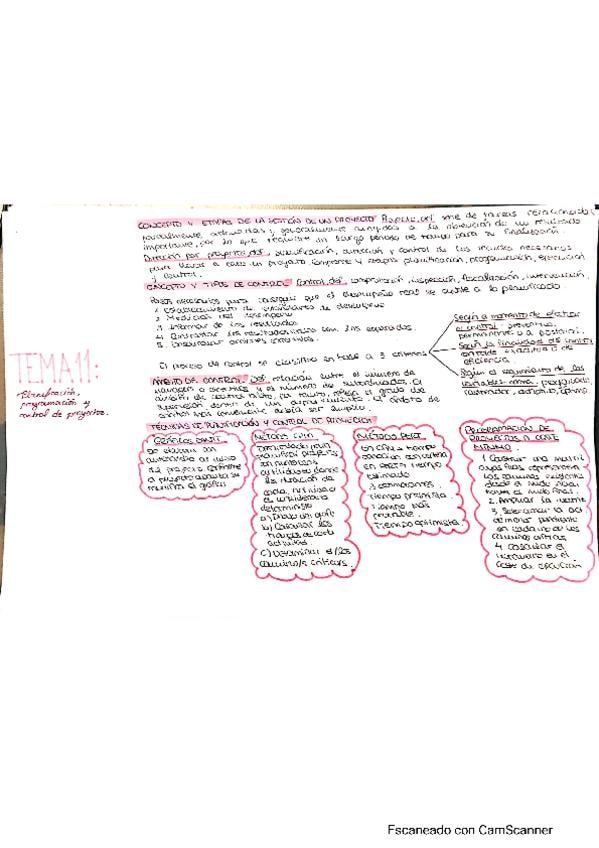 CONCEPTO Y ETAPAS DE LA GESTIÓN DE UN PROYECTO Proyecto, def. de tareas relacionadas
parcialmente ordenadas y generalmente dirigidas a la obtención de un resultado
importante, por lo que requiere un largo periodo de tiempo para su finalización.
Dirección por proyectos, def. planificación, dirección y control de los necesarios
para llevar a cabo un proyecto comprende 4 etapas planificación, programación, ejecución
y control.
CONCEPTO Y TIPOS DE CONTROL Control, def. comprobación, inspección, fiscalización, intervención.
Pasos necesarios para conseguir que el desempeño real se ajuste a lo planificado.
1. Establecimiento de estándares de desempeño
2. Medición del desempeño
3. Informar de los resultados
4. Contrastar los resultados con los esperados.
5. acciones
El proceso de control se clasifica en base a 3 criterios
Según el momento de efectuar
el control: preventivo,
permanente o a posteriori.
Según la finalidad del control
control de eficacia o de
eficiencia.
Según el seguimiento de las
variables: prefijado,
rastreador, adaptivo, óptimo
TEMA 11:
Planificación,
programación y
control de proyectos.
ÁMBITO DE CONTROL. Def. relación entre el número de
y el número de subordinados. El
ámbito de control refleja el grado de
supervisión dentro de un El ámbito de
control más conveniente debía ser amplio.
TÉCNICAS DE PLANIFICACIÓN Y CONTROL DE PROYECTOS
GRÁFICOS GANTT
Se elaboran con
al inicio
del proyecto, conforme
el proyecto avanza se
el gráfico
MÉTODO CPM
para
proyectos
con numerosas
actividades donde
la duración de
cada actividad
se considera
determinista
a) Dibujar un grafo
b) Calcular los
tiempos de cada
actividad.
c) Determinar el/los
camino/s críticos.
MÉTODO PERT
En CPM = tiempo
conocido con certeza
en PERT = tiempo
estimado
3 estimaciones.
Tiempo pesimista
Tiempo más
probable.
Tiempo optimista
PROGRAMACIÓN DE
PROYECTOS A COSTE
MÍNIMO
1. Construir una matriz
cuyas filas
los caminos existentes
desde el nudo inicial
hasta el nudo final.
2. Ampliar la matriz
3. Seleccionar la act
de menor pendiente
en cada uno de los
caminos críticos
4. Calcular el
incremento en el
coste de ejecución
Escaneado con CamScanner